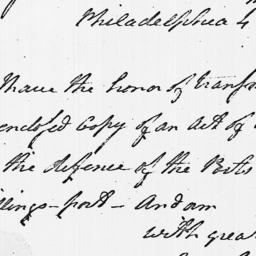 Philadelphia 4
have the honor of transm
enclosed Copy of an Act of
the defence of the Ports
llings-port - And am
with grea